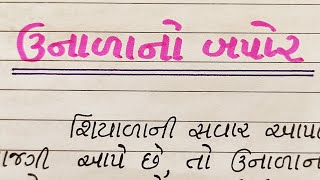 ઉનાળાનો બપોર
શિયાળાની સવાર આપ
જગી આપે છે, તો ઉનાળાન